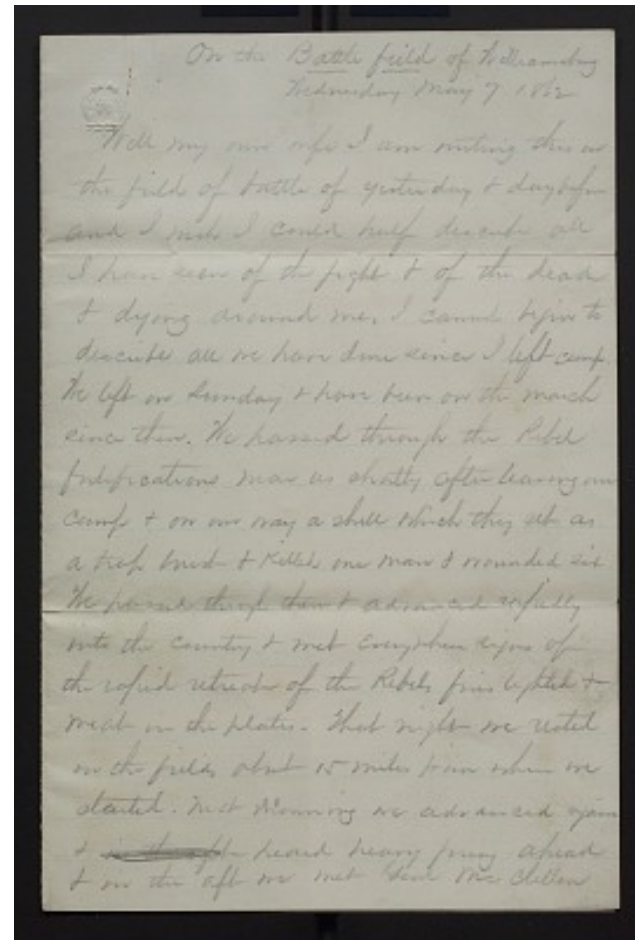 On the Battle field of Williamsburg
Wednesday May 7. 1862
Well my own wife I am writing this on
the field of battle of yesterday & day before
and I wish I could half describe all
I have seen of the fight & of the dead
& dying around me. I cannot begin to
describe all we have done since I left camp.
We left on Sunday & have been on the march
since then. We passed through the Rebel
fortifications near us shortly after leaving our
camp & on our way a shell which they set as
a trap burst & killed one man & wounded six
We passed through them & advanced rapidly
into the country & met everywhere signs of
the rapid retreat of the Rebels fires lighted &
meat on the plates. That night we rested
in the fields about 15 miles from where we
started. Next Morning we advanced again
& heard heavy firing ahead
& in the aft we met Genl McClellan